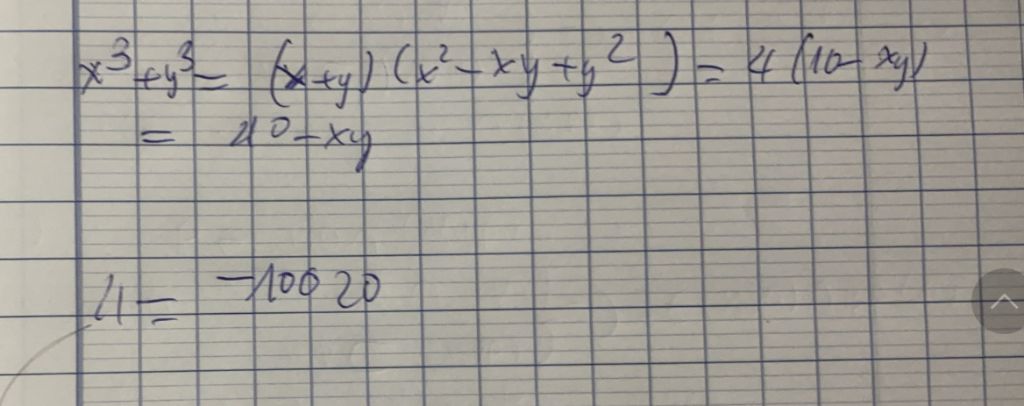 x³+y³= (x+y) (x²-xy+y²) = 4(10-xy)
= 40-xy
4=